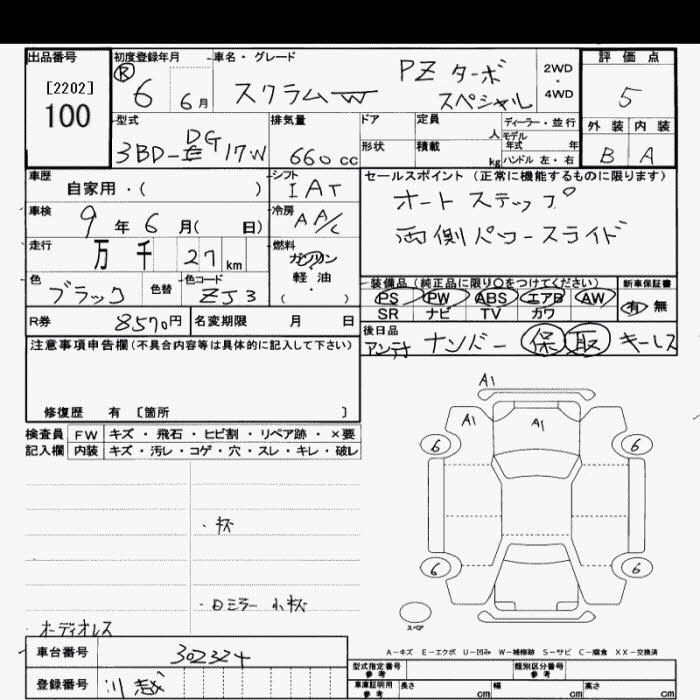 出品番号
[2202]
100
初度登録年月
R 6 6月
車名・グレード
スクラムW
PZ ターボ
スペシャル
2WD
・
4WD
評価点
5
外装 内装
B A
型式
3BD-DG17W
排気量
660cc
ドア
形状
定員
人
積載
kg
ディーラー・並行
モデル
年式 年
ハンドル 左・右
車歴
自家用・( )
シフト
IAT
セールスポイント(正常に機能するものに限ります)
オートステップ
両側パワースライド
車検
9年 6月( 日)
冷房
AA/C
走行
万 千 27 km
燃料
ガソリン
軽油
( ・ )
色
ブラック
色替
色コード
ZJ3
装備品(純正品に限り○をつけてください)
PS PW ABS エアB AW
SR ナビ TV カワ
新車保証書
有 無
R券
8570円
名変期限 月 日
後日品
アンテナ ナンバー 保 取 キーレス
注意事項申告欄(不具合内容等は具体的に記入して下さい)
修復歴 有 〔箇所 〕
検査員 FW キズ・飛石・ヒビ割・リペア跡・×要
記入欄 内装 キズ・汚レ・コゲ・穴・スレ・キレ・破レ
A1
A1 A1
6 6
・杯
6 6
・ロミラー 小杯
スペア
オーディオレス
A-キズ E-エクボ U-凹み W-補修跡 S-サビ C-腐食 XX-交換済
車台番号
302324
登録番号
川越
型式指定番号
参考
類別区分番号
参考
車庫証明用
参考
長さ cm 幅 cm 高さ cm